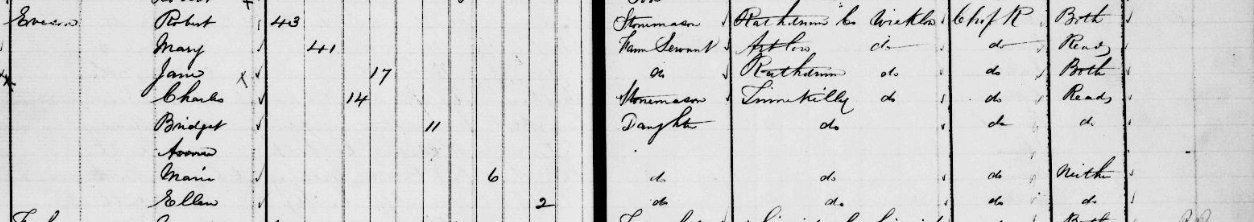 Robert 43 Stonemason Rathdrum Co Wicklow Ch of R Both
Mary 41 Farm Servant Arklow do do Read
Jane x 17 do Rathdrum do do Both
Charles 14 Stonemason Tinnekilly do do Read
Bridget 11 Daughter do do do
Maria 6 do do do Neither
Ellen 2 do do do do